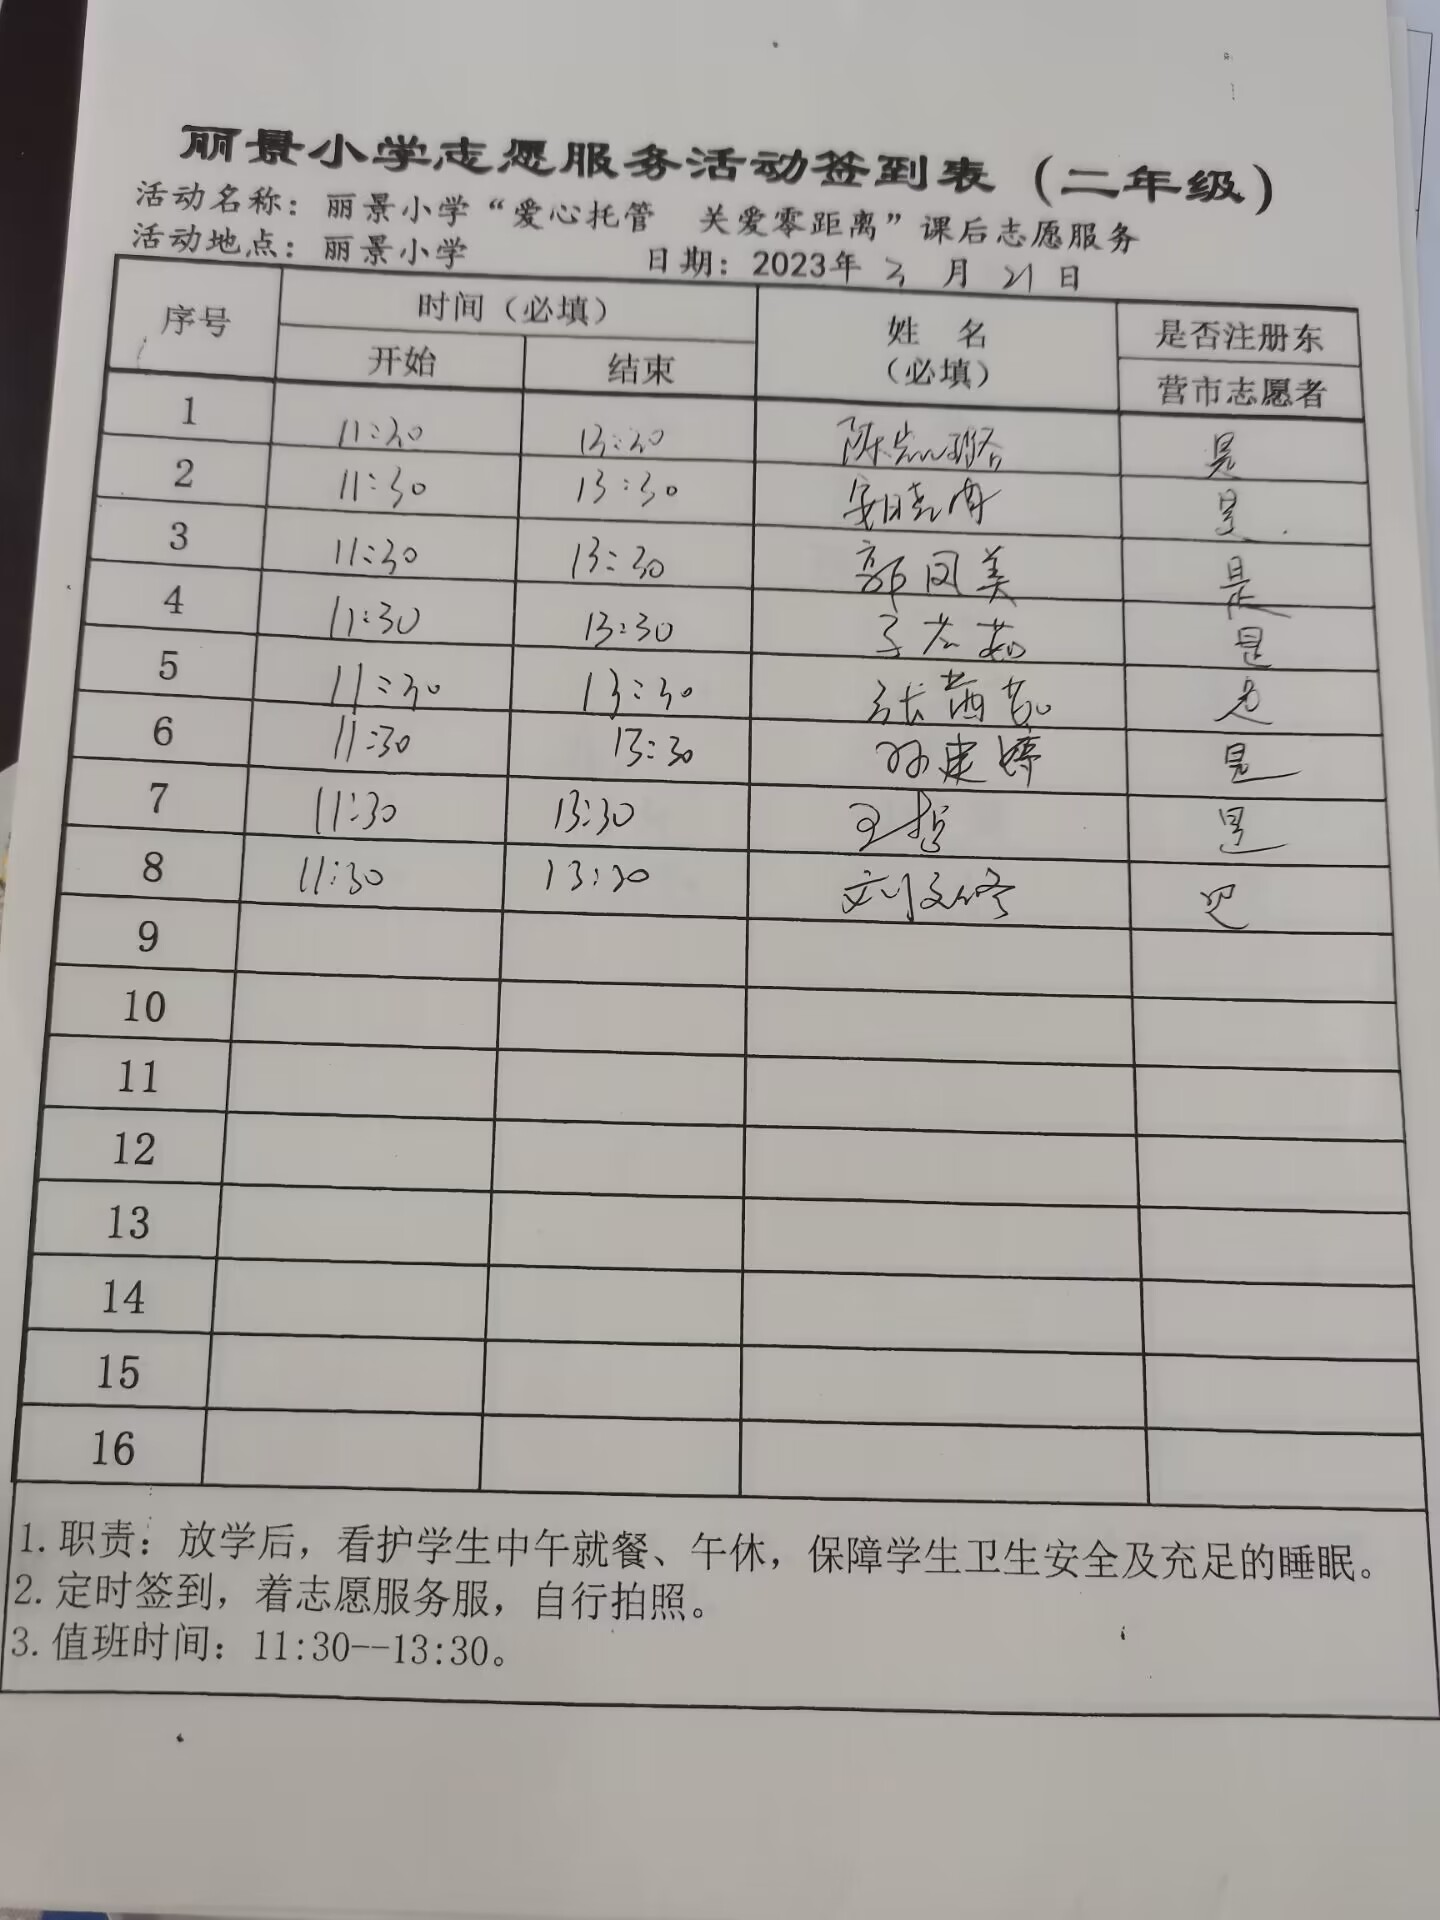 丽景小学志愿服务活动签到表（二年级）
活动名称：丽景小学“爱心托管 关爱零距离”课后志愿服务
活动地点：丽景小学 日期：2023年 3 月 21 日
序号 时间（必填） 姓 名（必填） 是否注册东营市志愿者
开始 结束
1 11:30 13:30 是
2 11:30 13:30 是
3 11:30 13:30 郭凤美 是
4 11:30 13:30 是
5 11:30 13:30 张茜茹 是
6 11:30 13:30 孙建婷 是
7 11:30 13:30 王哲 是
8 11:30 13:30 刘文修 是
9
10
11
12
13
14
15
16
1. 职责：放学后，看护学生中午就餐、午休，保障学生卫生安全及充足的睡眠。
2. 定时签到，着志愿服务服，自行拍照。
3. 值班时间：11:30--13:30。